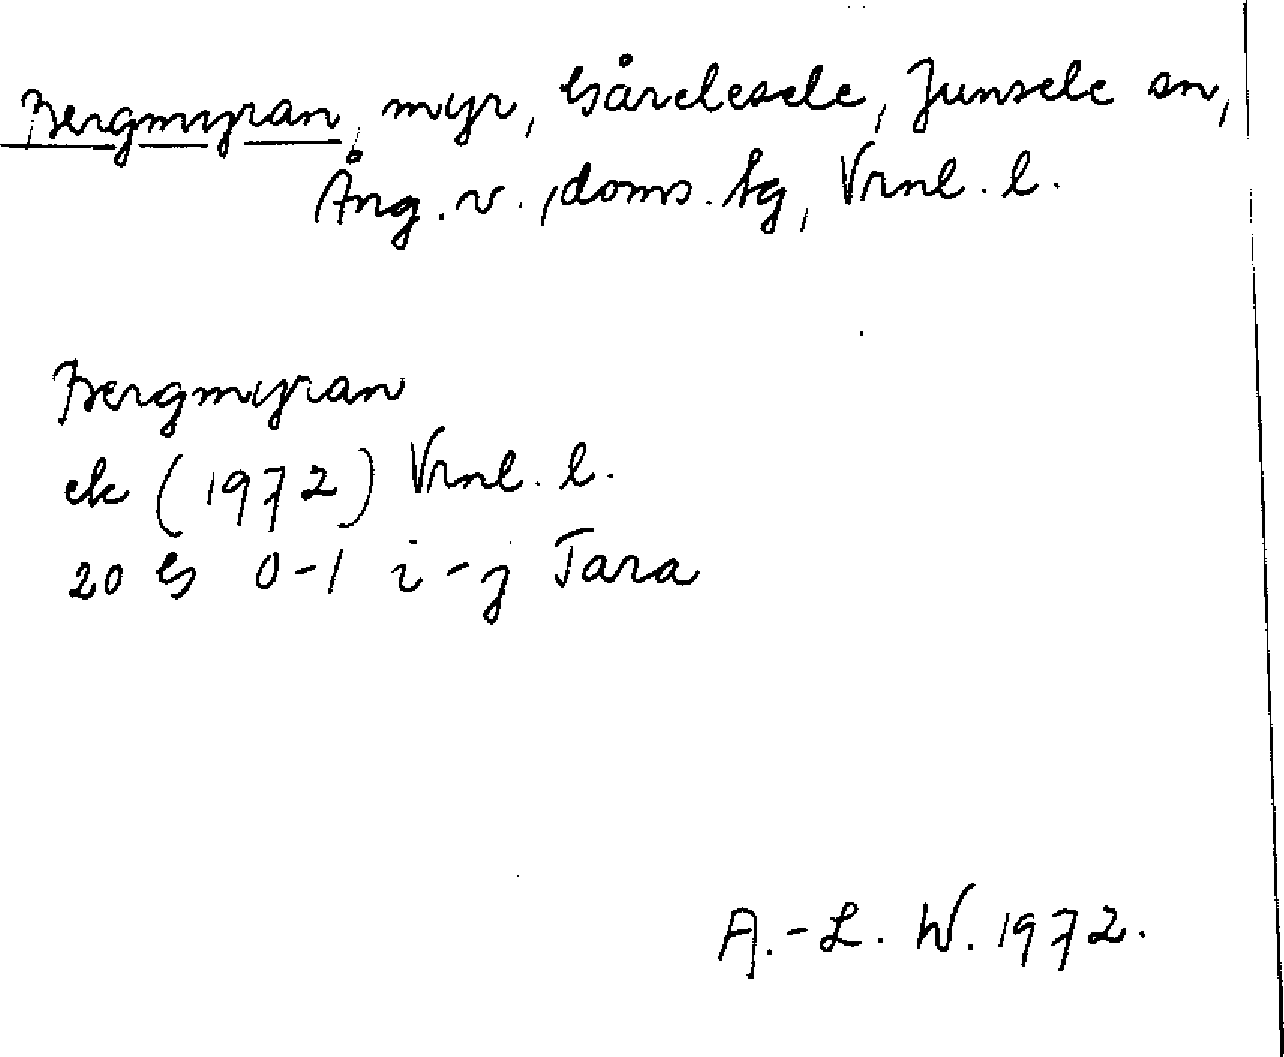 Bergmyran, myr, Gårelesele, Junsele sn,
Ång. v., doms. tg, Vrnl. l.
Bergmyran
ek (1972) Vrnl. l.
20 G 0-1 i-j Tara
A.-L. W. 1972.